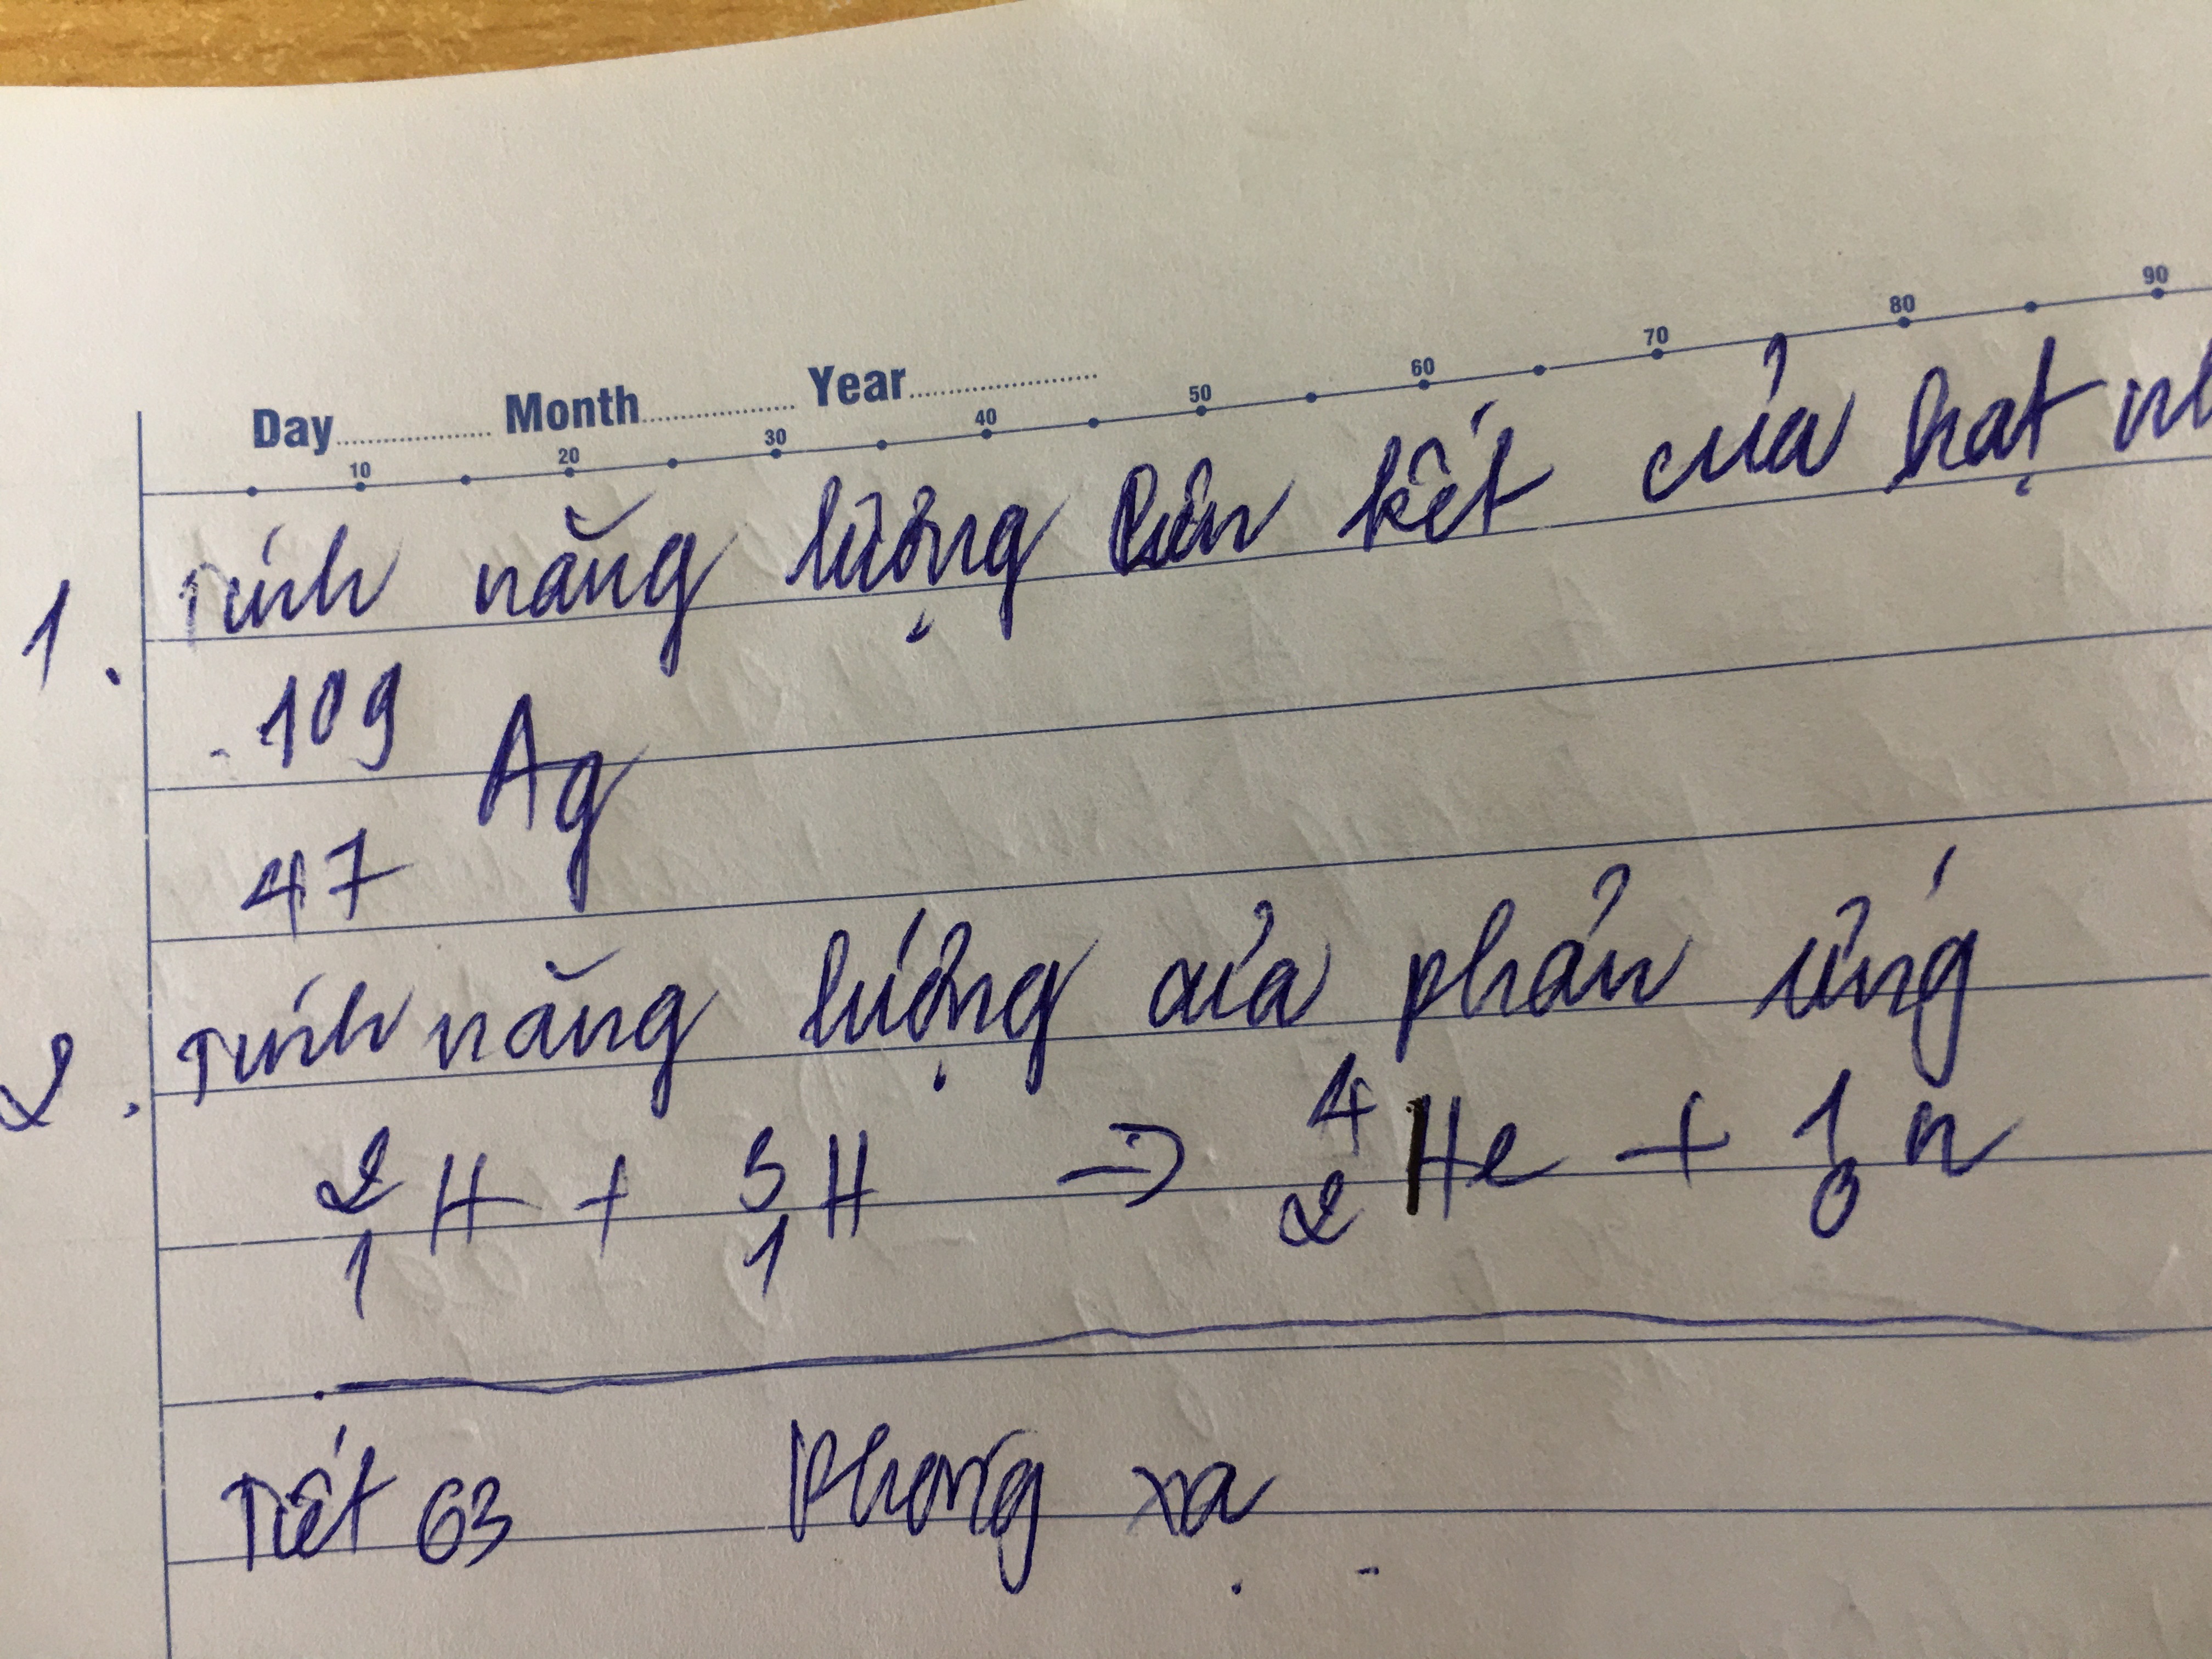 Day Month Year
10 20 30 40 50 60 70 80 90
1. Tính năng lượng liên kết của hạt
109
Ag
47
2. Tính năng lượng của phản ứng
2 3 4 1
H + H → He + n
1 1 2 0
Tiết 63 Phóng xạ